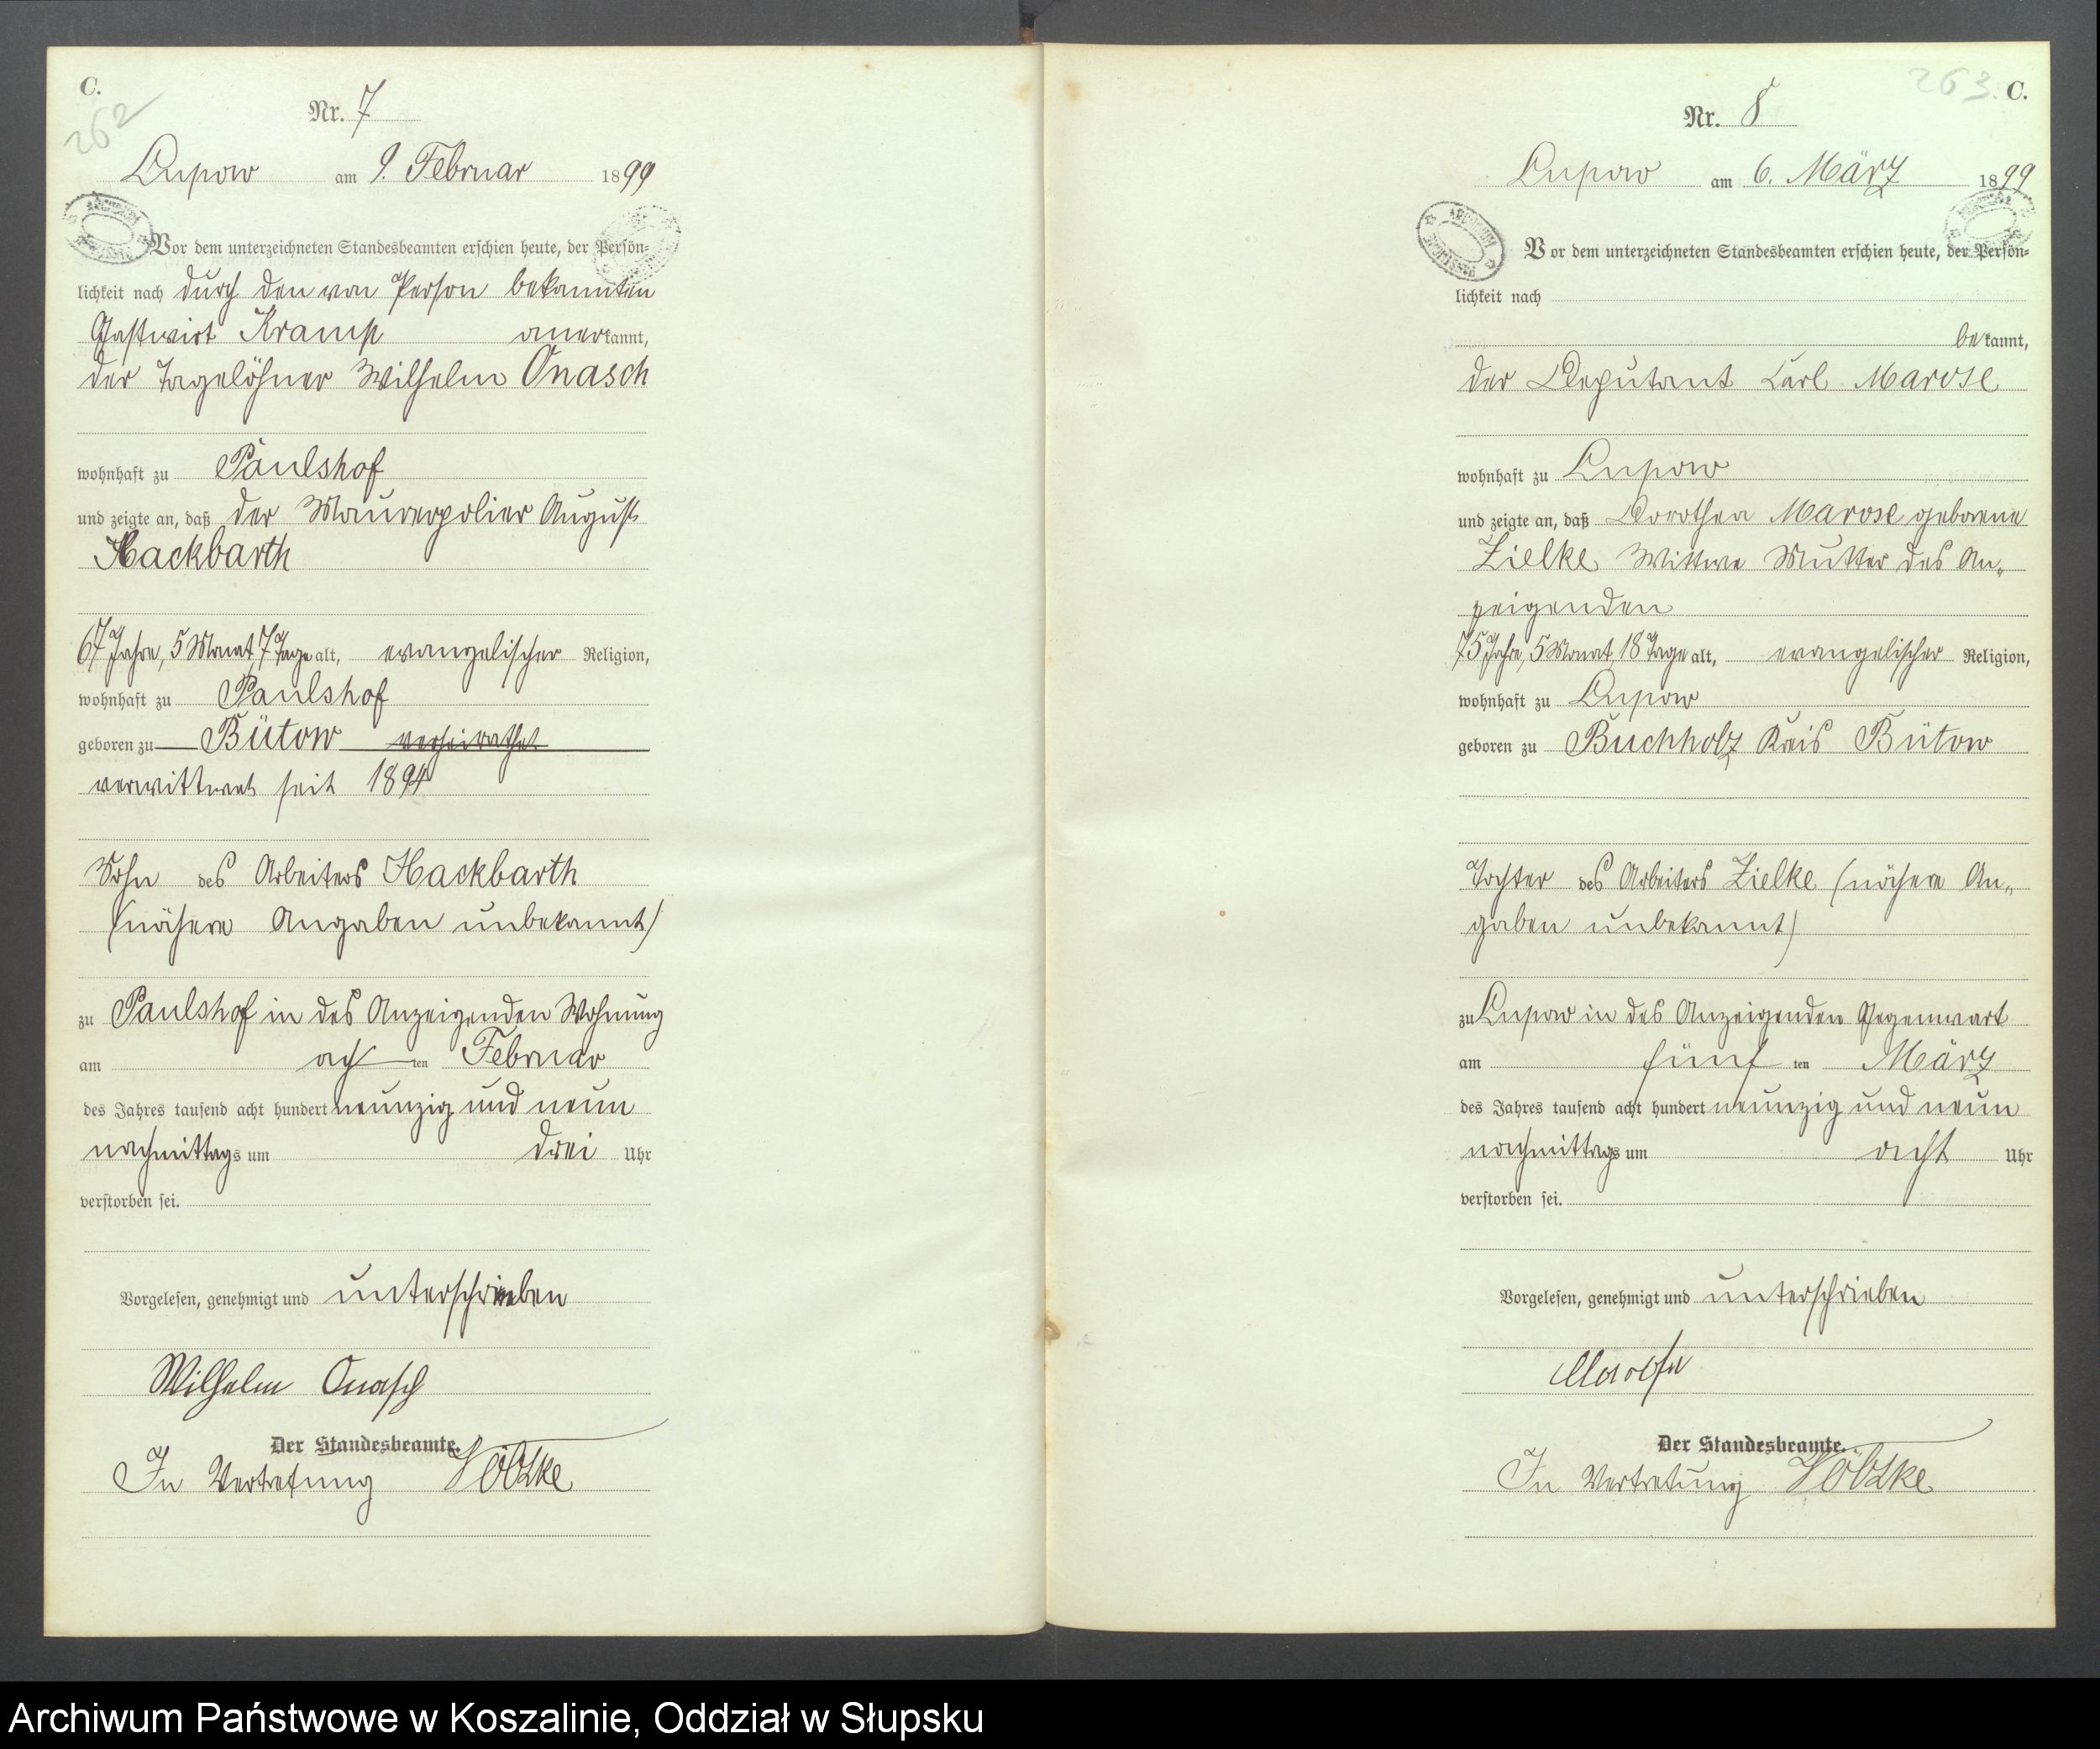 C.
262
Nr. 7
Lupow am 9. Februar 1899
Vor dem unterzeichneten Standesbeamten erschien heute, der Persön-
lichkeit nach durch den von Person bekannten
Gastwirt Kramp anerkannt,
der Tagelöhner Wilhelm Onasch
wohnhaft zu Paulshof
und zeigte an, daß der Maurerpolier August
Hackbarth
67 Jahre, 5 Monat, 7 Tage alt, evangelischer Religion,
wohnhaft zu Paulshof
geboren zu Bütow verheirathet
verwittwet seit 1894
Sohn des Arbeiters Hackbarth
(nähere Angaben unbekannt)
zu Paulshof in des Anzeigenden Wohnung
am ach ten Februar
des Jahres tausend acht hundert neunzig und neun
nachmittags um drei Uhr
verstorben sei.
Vorgelesen, genehmigt und unterschrieben
Wilhelm Onasch
Der Standesbeamte.
In Vertretung
263. C.
Nr. 8
Lupow am 6. März 1899
Vor dem unterzeichneten Standesbeamten erschien heute, der Persön-
lichkeit nach
bekannt,
der Deputant Karl Marose
wohnhaft zu Lupow
und zeigte an, daß Dorothea Marose geborene
Zielke, Wittwe Mutter des An-
zeigenden
75 Jahre, 5 Monat, 18 Tage alt, evangelischer Religion,
wohnhaft zu Lupow
geboren zu Buchholz Kreis Bütow
Tochter des Arbeiters Zielke (nähere An-
gaben unbekannt)
zu Lupow in des Anzeigenden Gegenwart
am fünf ten März
des Jahres tausend acht hundert neunzig und neun
nachmittags um acht Uhr
verstorben sei.
Vorgelesen, genehmigt und unterschrieben
Marose
Der Standesbeamte.
In Vertretung
Archiwum Państwowe w Koszalinie, Oddział w Słupsku